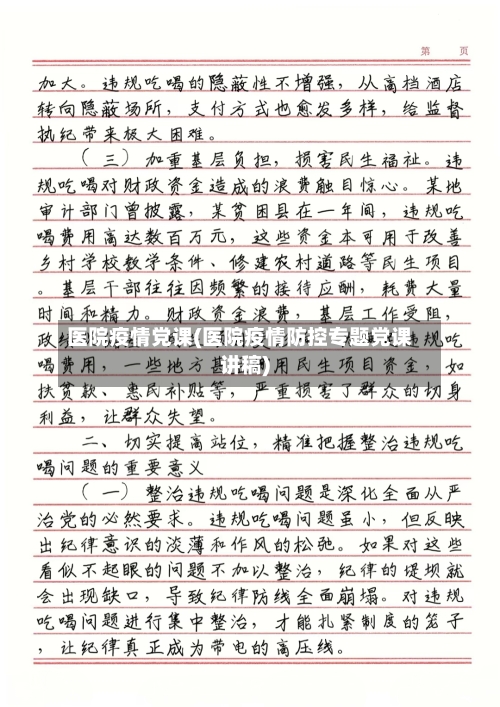 第 页
加大。违规吃喝的隐蔽性不增强，从高档酒店
转向隐蔽场所，支付方式也愈发多样，给监督
执纪带来极大困难。
（三）加重基层负担，损害民生福祉。违
规吃喝对财政资金造成的浪费触目惊心。某地
审计部门曾披露，某贫困县在一年间，违规吃
喝费用高达数百万元，这些资金本可用于改善
乡村学校教学条件、修建农村道路等民生项目
。基层干部往往因频繁的接待应酬，耗费大量
时间和精力。财政资金浪费，基层工作受阻，
医院疫情党课(医院疫情防控专题党课
讲稿)
喝费用，一些地方甚 用民生项目资金，如
扶贫款、惠民补贴等，严重损害了群众的切身
利益，让群众失望。
二、切实提高站位，精准把握整治违规吃
喝问题的重要意义
（一）整治违规吃喝问题是深化全面从严
治党的必然要求。违规吃喝问题虽小，但反映
出纪律意识的淡薄和作风的松弛。如果对这些
看似不起眼的问题不加以整治，纪律的堤坝就
会出现缺口，导致纪律防线全面崩塌。对违规
吃喝问题进行集中整治，才能扎紧制度的笼子
，让纪律真正成为带电的高压线。